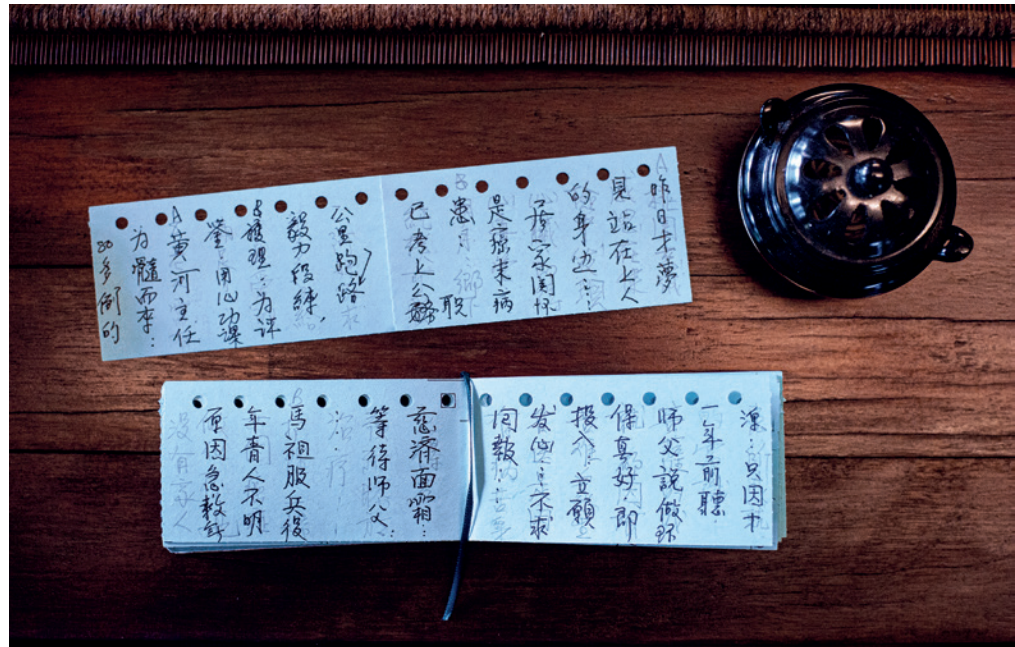 A昨日才夢
見站在上人
的身边：
居家関怀
是癌末病
患
已考上公務
職
公里跑路
毅力段練，
護理：为评
鉴：用心功课
A黄河主任
为髓而來：
80多例的
深：只因才
一年前聽
师父說做环
保真好，即
投入，立願
发心：不求
回報
慈濟面霜：
等待师父：
B馬祖服兵役
年青人不明
原因急救